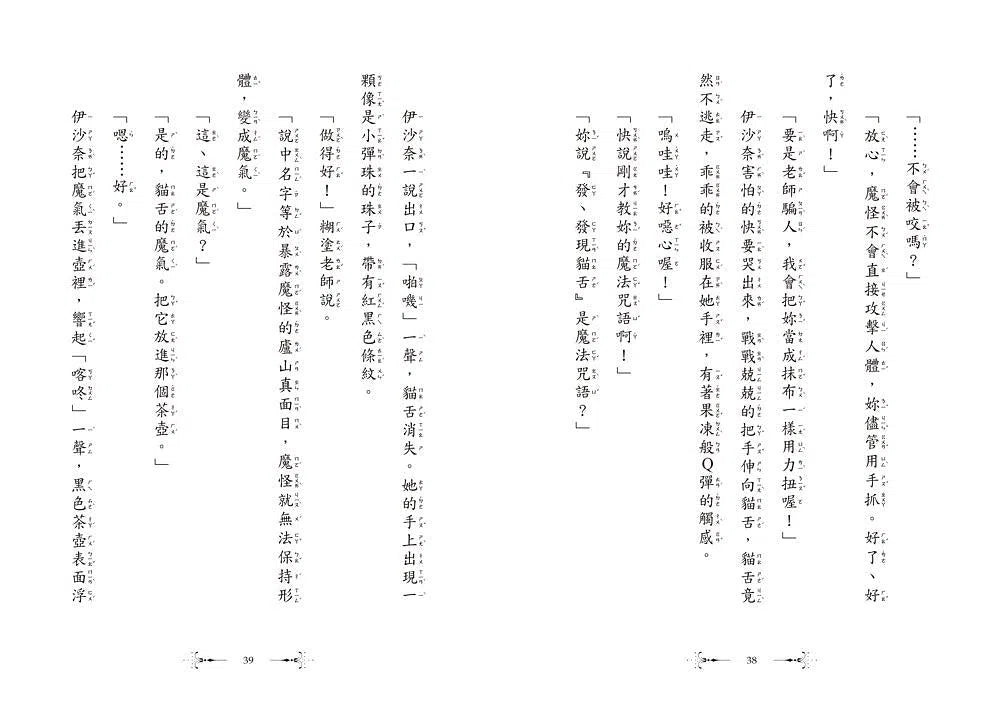 「……不會被咬嗎？」
「放心，魔怪不會直接攻擊人體，妳儘管用手抓。好了、好
了，快啊！」
「要是老師騙人，我會把妳當成抹布一樣用力扭喔！」
伊沙奈害怕的快要哭出來，戰戰兢兢的把手伸向貓舌，貓舌竟
然不逃走，乖乖的被收服在她手裡，有著果凍般Q彈的觸感。
「嗚哇哇！好噁心喔！」
「快說剛才教妳的魔法咒語啊！」
「妳說『發、發現貓舌』是魔法咒語？」
38
伊沙奈一說出口，「啪嘰」一聲，貓舌消失。她的手上出現一
顆像是小彈珠的珠子，帶有紅黑色條紋。
「做得好！」糊塗老師說。
「說中名字等於暴露魔怪的廬山真面目，魔怪就無法保持形
體，變成魔氣。」
「這、這是魔氣？」
「是的，貓舌的魔氣。把它放進那個茶壺。」
「嗯……好。」
伊沙奈把魔氣丟進壺裡，響起「喀咚」一聲，黑色茶壺表面浮
39